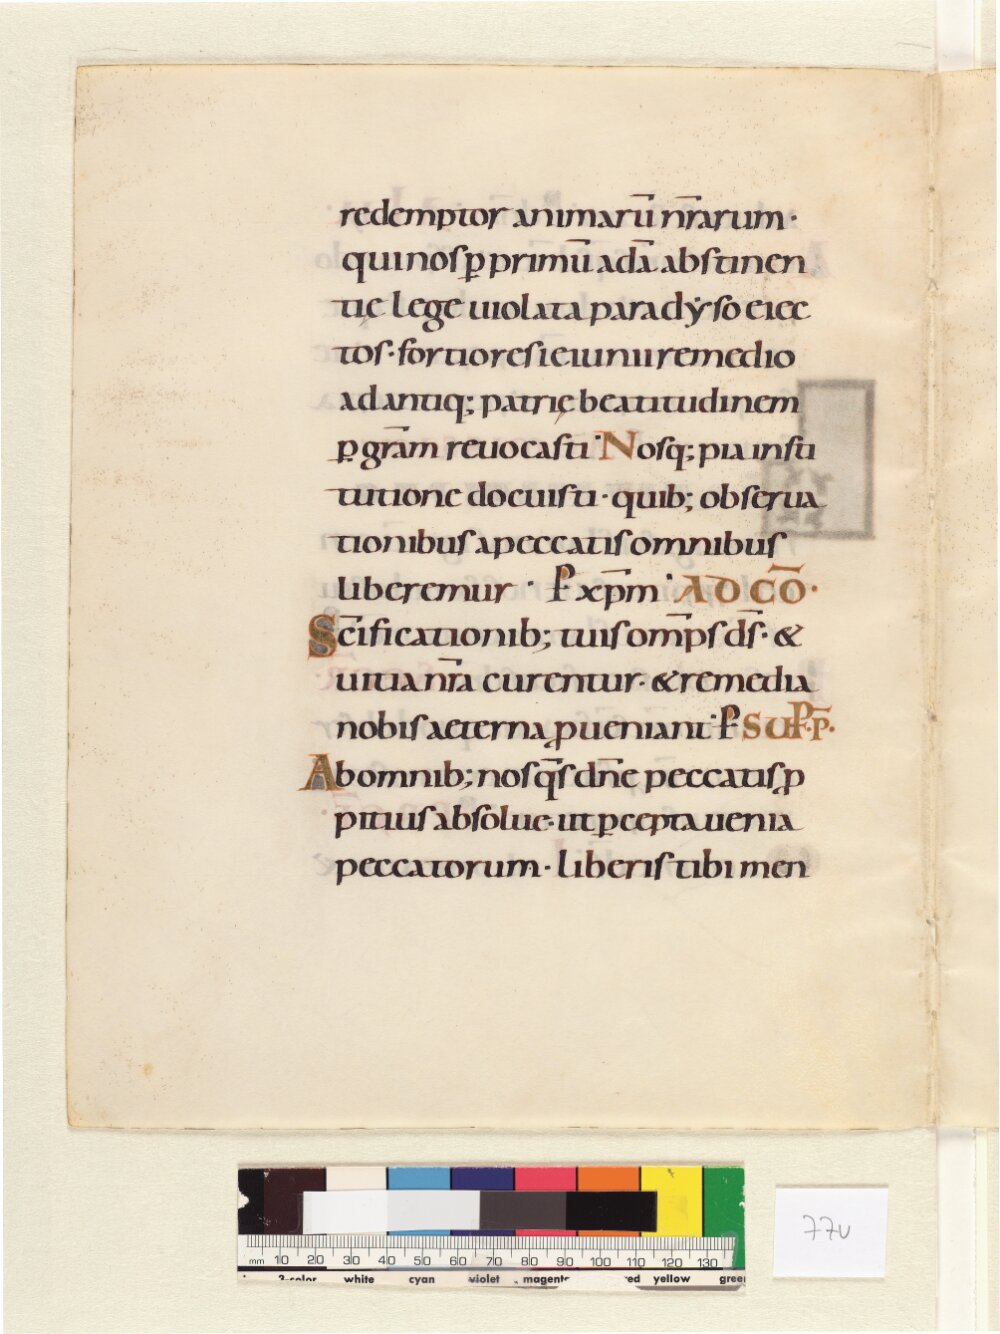 redemptor animarū nr̄arum·
qui nos ꝑ primū adā abstinen
tię lege uiolata paradẏso eiec
tos· fortiores ieiunii remedio
ad antiq; patrię beatitudinem
ꝑ gr̄am reuocasti· Nosq; pia insti
tutione docuisti· quib; obserua
tionibus a peccatis omnibus
liberemur · P xp̄m · AD CŌ·
Sc̄ificationib; tuis omp̄s ds̄· &
uitia nr̄a curentur· & remedia
nobis aeterna ꝓueniant· P SUP P̄·
Ab omnib; nos qs̄ dn̄e peccatis ꝓ
pitius absolue· ut ꝑcepta uenia
peccatorum· liberis tibi men
77v
mm 10 20 30 40 50 60 70 80 90 100 110 120 130
3-color white cyan violet magenta red yellow green